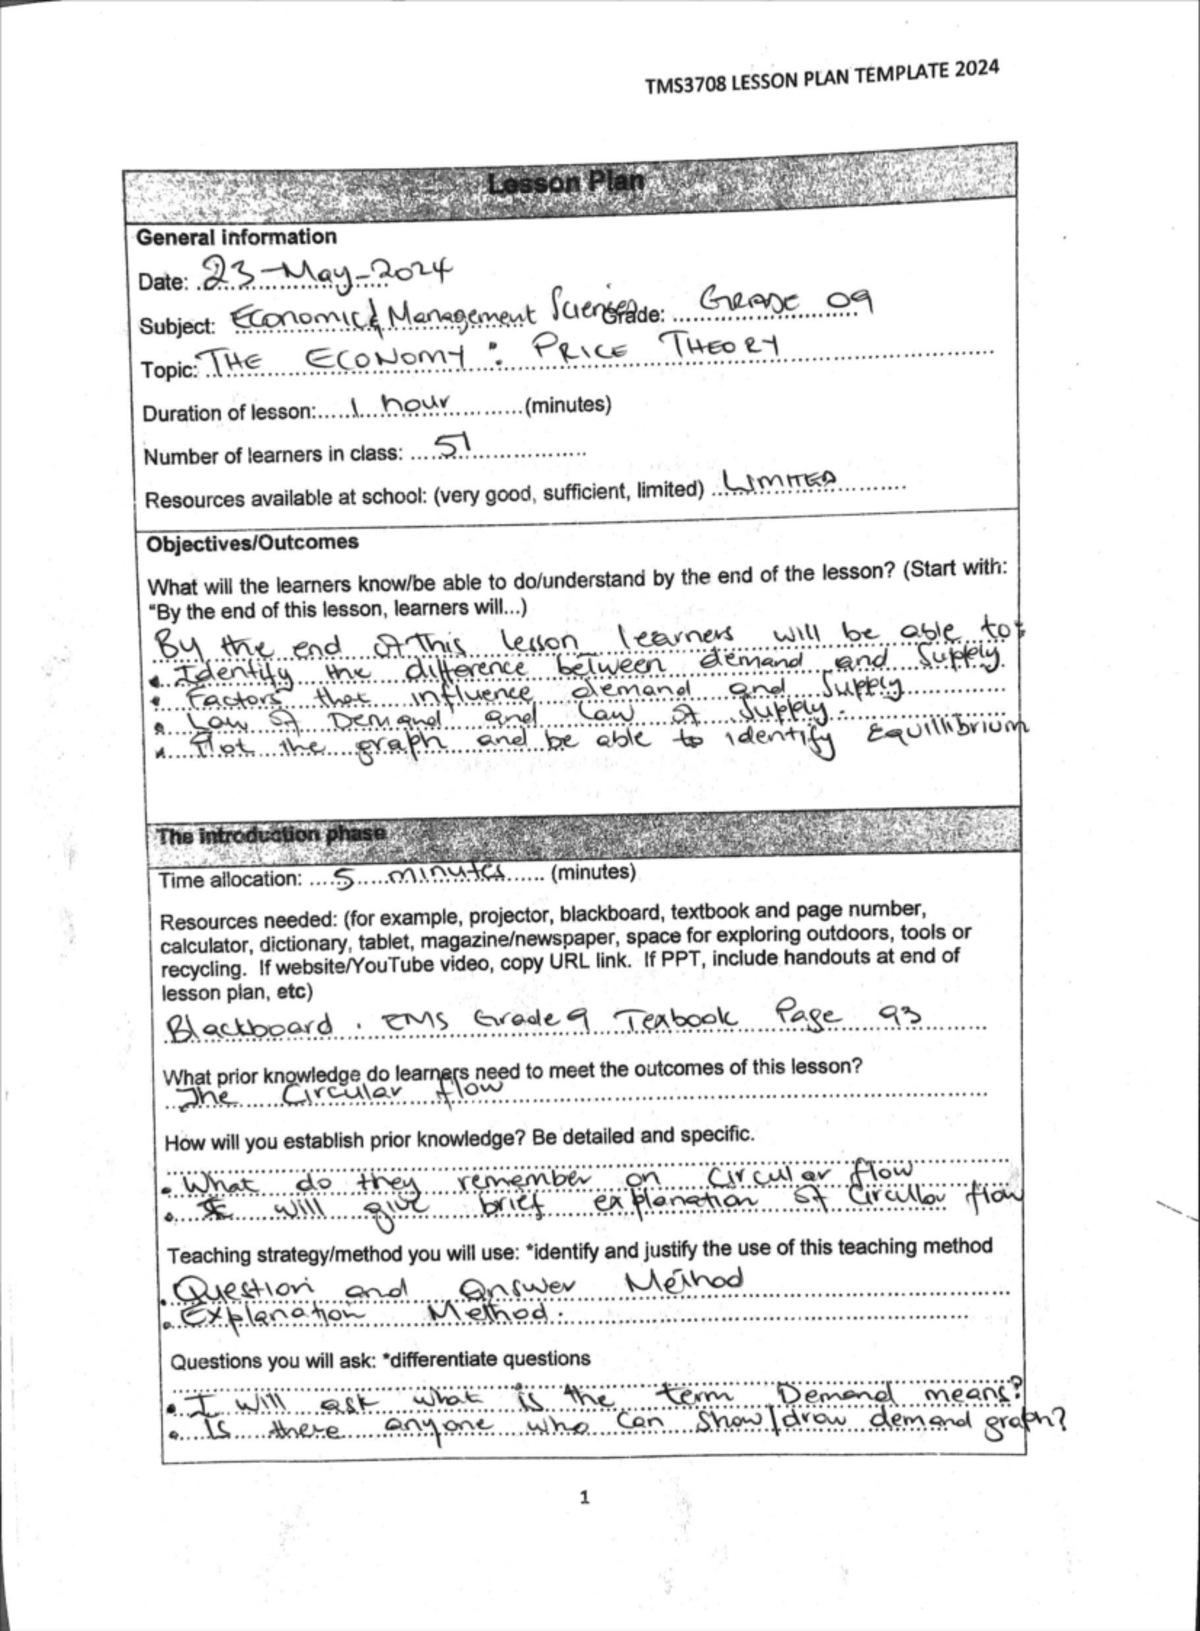 TMS3708 LESSON PLAN TEMPLATE 2024
Lesson Plan
General information
Date: 23-May-2024
Subject: Economic & Management Sciences Grade: GRADE 09
Topic: THE ECONOMY : PRICE THEORY
Duration of lesson: 1 hour (minutes)
Number of learners in class: 51
Resources available at school: (very good, sufficient, limited) LIMITED
Objectives/Outcomes
What will the learners know/be able to do/understand by the end of the lesson? (Start with:
"By the end of this lesson, learners will...)
By the end of this lesson learners will be able to:
• Identify the difference between demand and Supply.
• Factors that influence demand and Supply
• Law of Demand and Law of Supply.
• Plot the graph and be able to identify Equillibrium
The introduction phase
Time allocation: 5 minutes (minutes)
Resources needed: (for example, projector, blackboard, textbook and page number,
calculator, dictionary, tablet, magazine/newspaper, space for exploring outdoors, tools or
recycling. If website/YouTube video, copy URL link. If PPT, include handouts at end of
lesson plan, etc)
Blackboard . EMS Grade 9 Texbook Page 93
What prior knowledge do learners need to meet the outcomes of this lesson?
The Circular flow
How will you establish prior knowledge? Be detailed and specific.
• What do they remember on Circular flow
• I will give brief explanation of Circular flow
Teaching strategy/method you will use: *identify and justify the use of this teaching method
• Question and Answer Method
• Explanation Method.
Questions you will ask: *differentiate questions
• I will ask what is the term Demand means?
• Is there anyone who can show/draw demand graph?
1